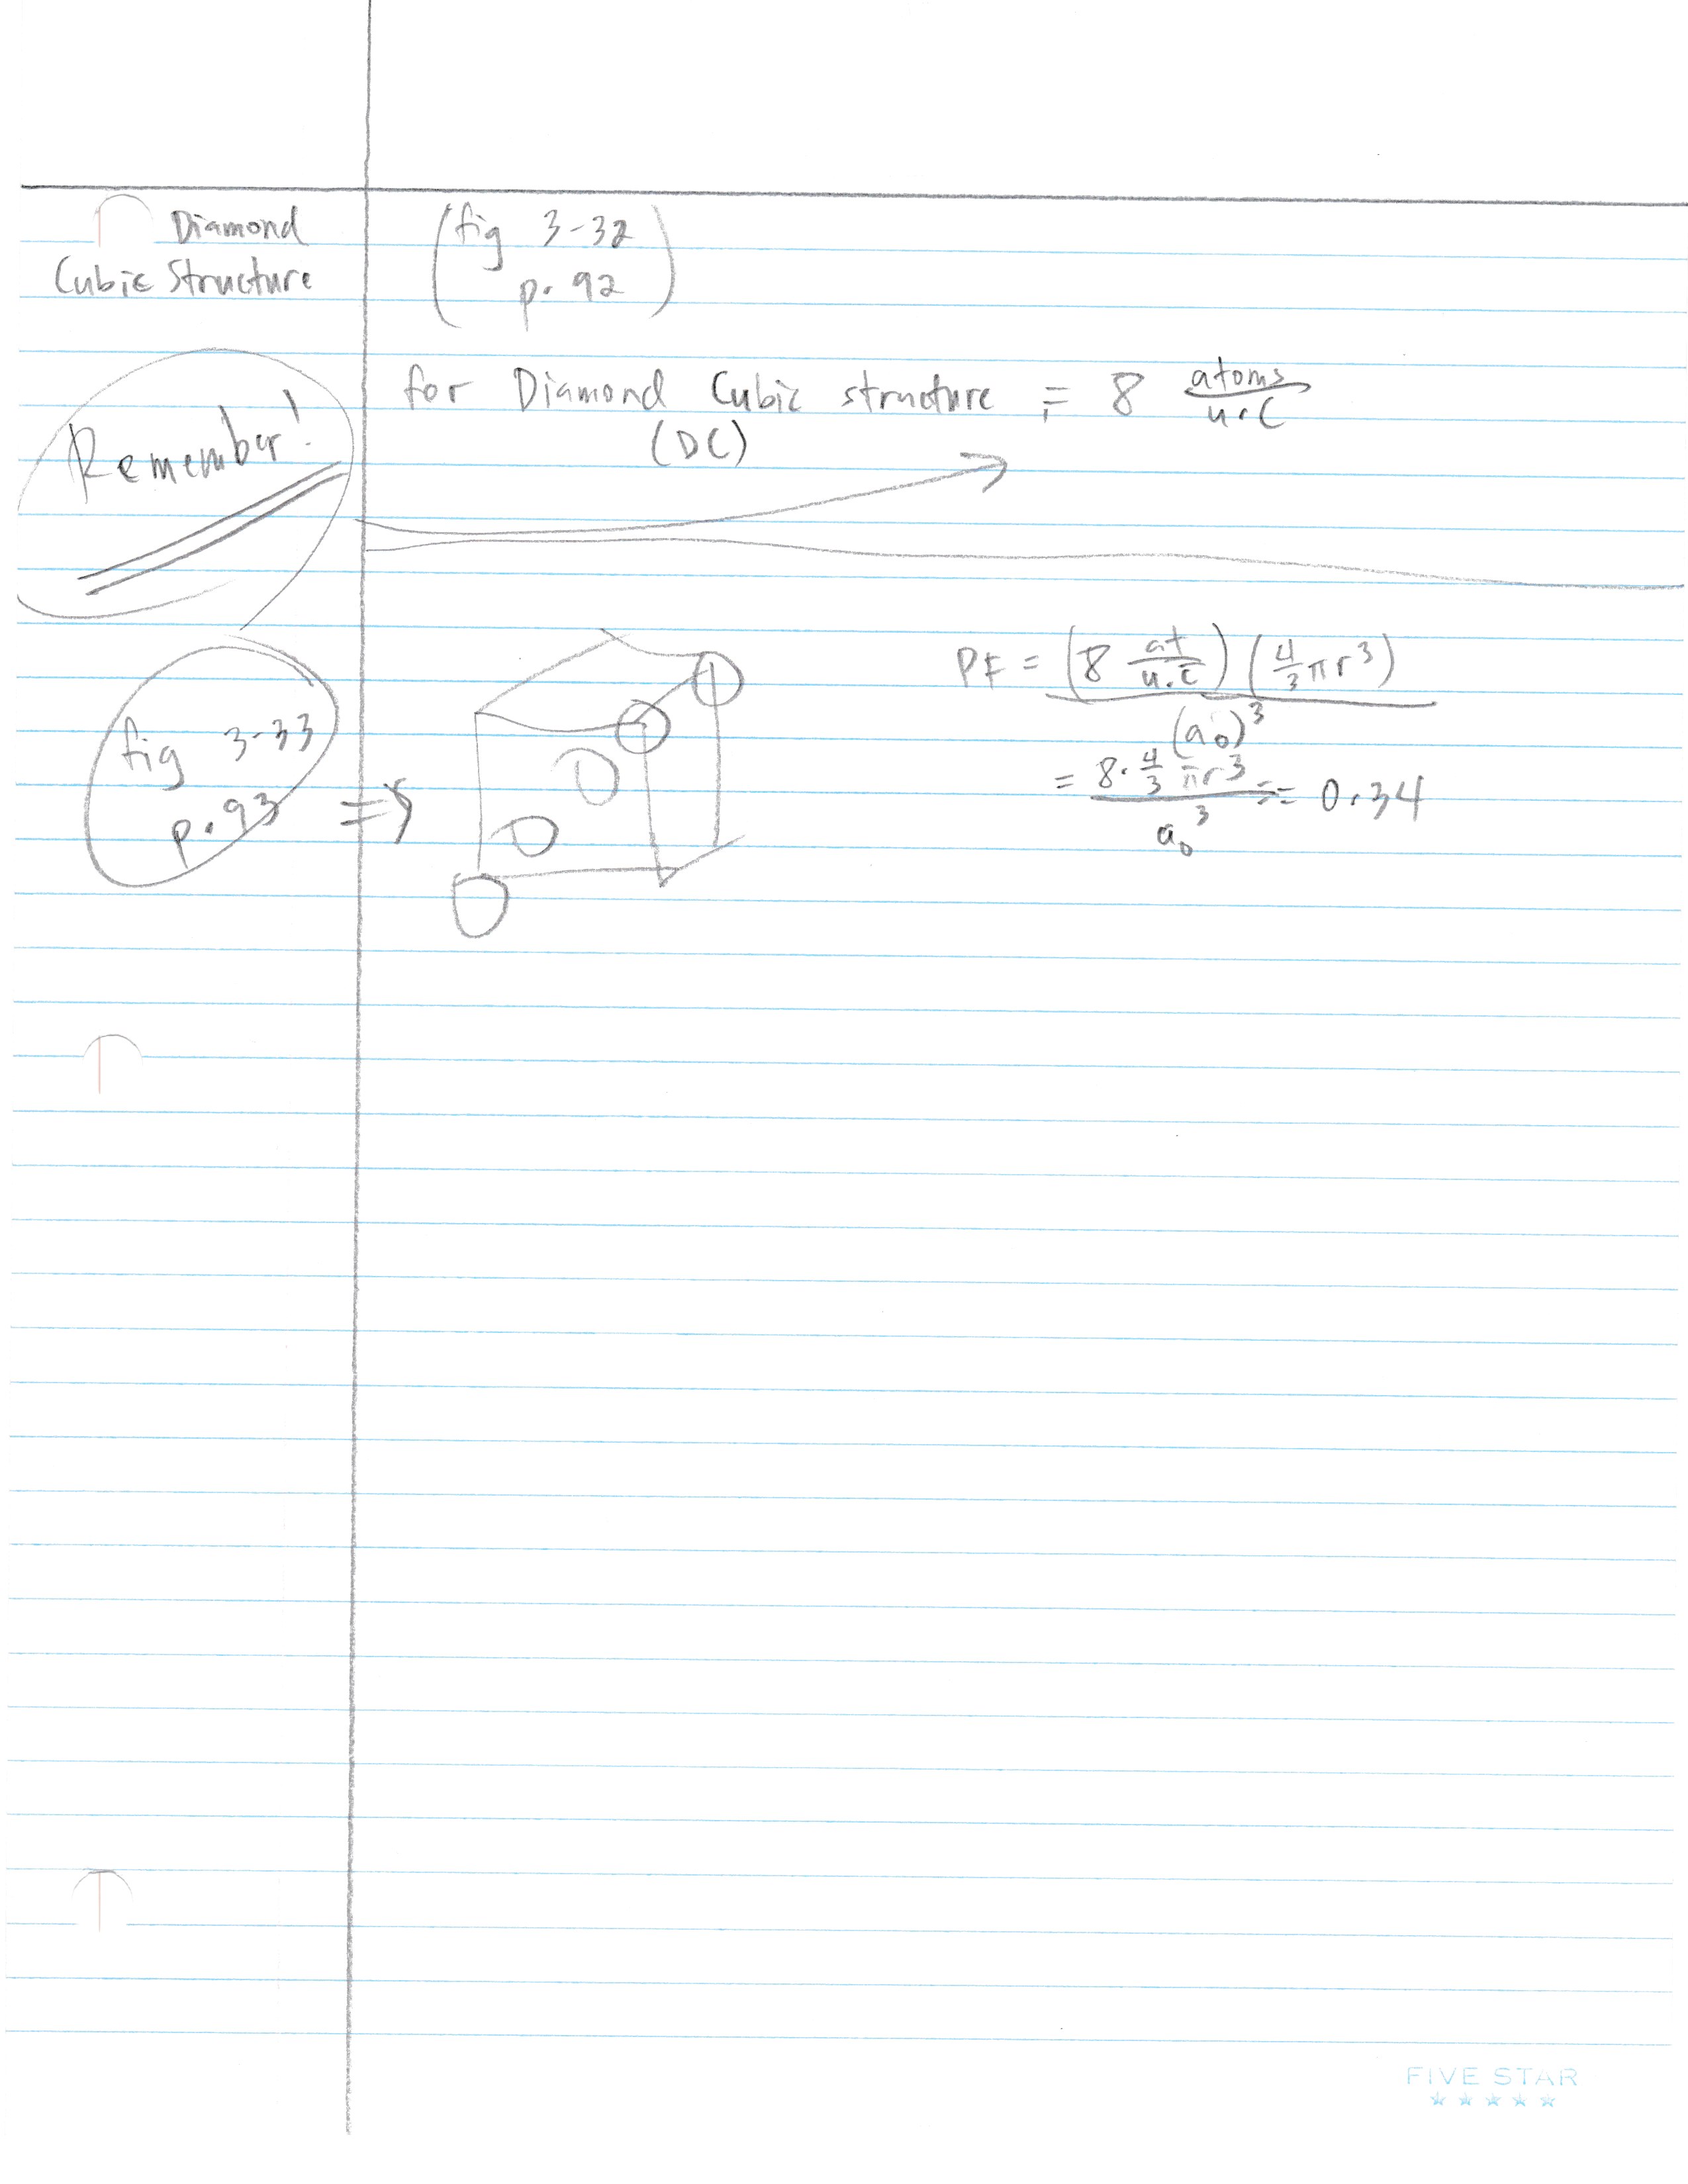 Diamond
Cubic Structure
(fig 3-32
p. 92)
Remember!
for Diamond Cubic structure = 8 atoms/u.c
(DC)
fig 3-33
p. 93 =>
PF = (8 at/u.c) (4/3 πr³) / (a₀)³
= 8·4/3 πr³ / a₀³ = 0.34
FIVE STAR